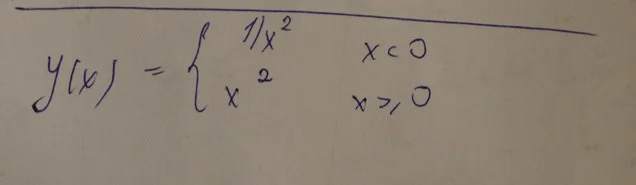 y(x) = { 1/x² x < 0
x² x ≥ 0